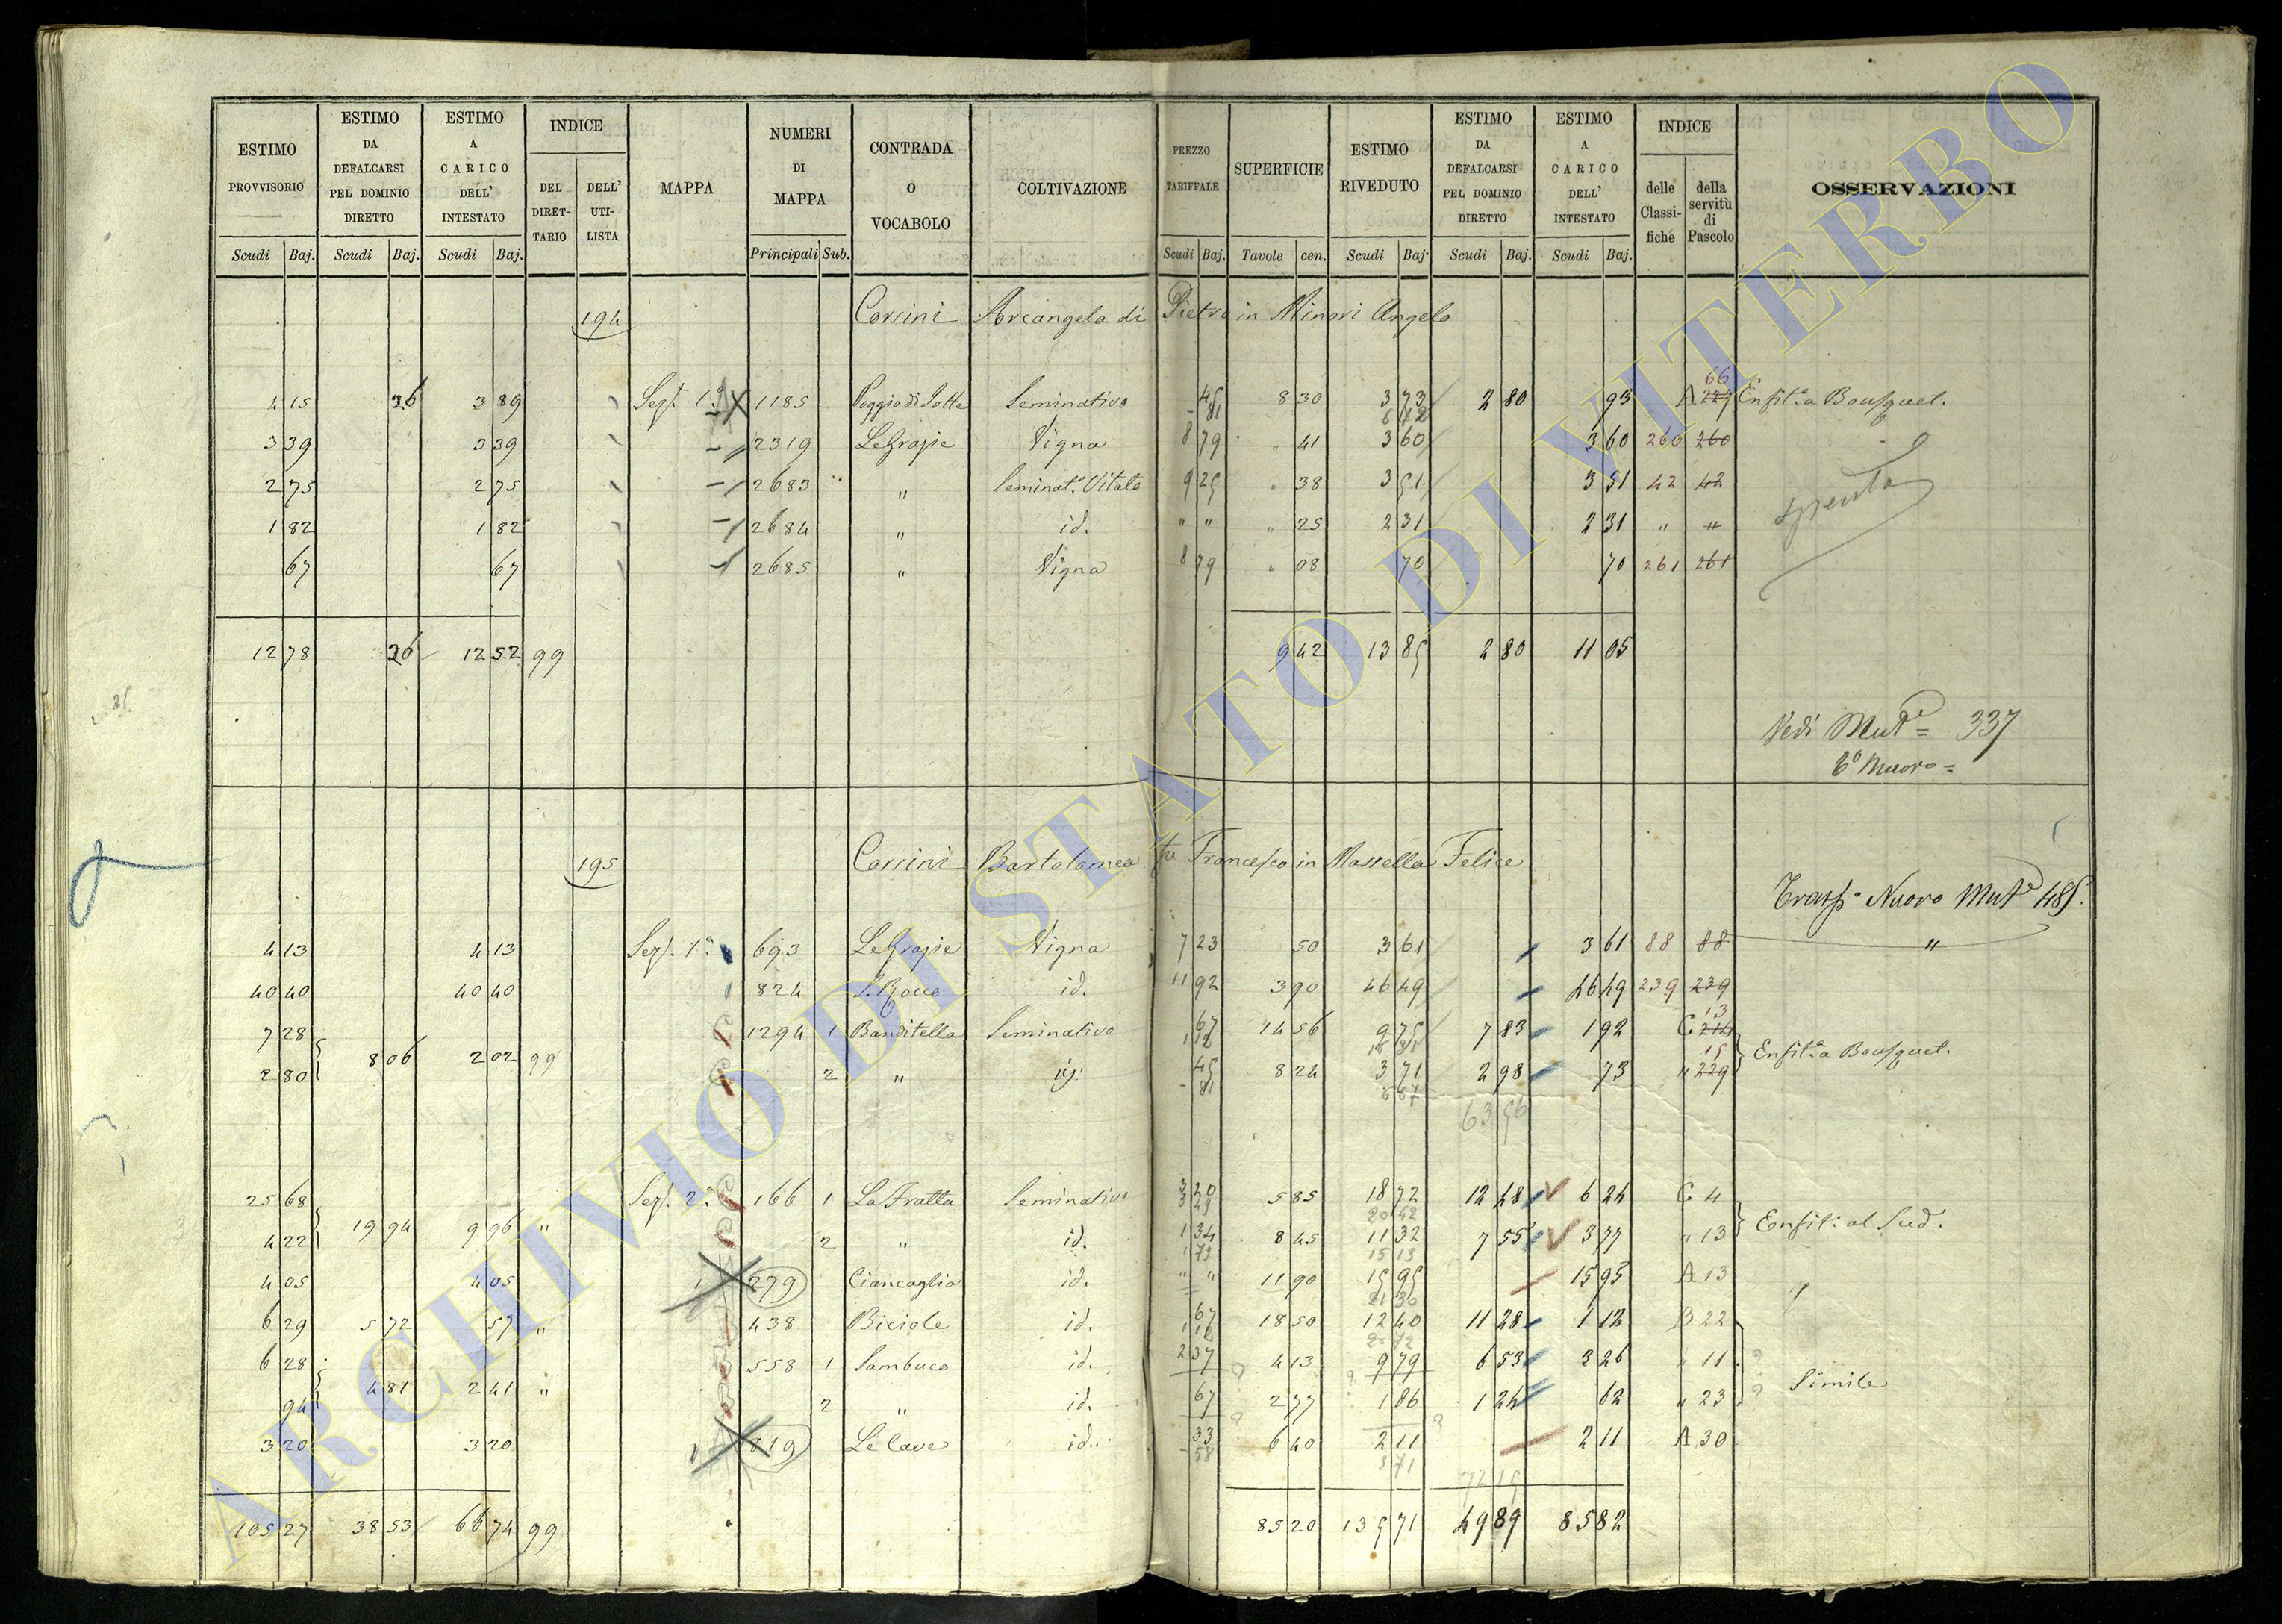 ESTIMO PROVVISORIO Scudi Baj. ESTIMO DA DEFALCARSI PEL DOMINIO DIRETTO Scudi Baj. ESTIMO A CARICO DELL' INTESTATO Scudi Baj. INDICE DEL DIRETTARIO DELL' UTILISTA MAPPA NUMERI DI MAPPA Principali Sub. CONTRADA O VOCABOLO COLTIVAZIONE PREZZO TARIFFALE Scudi Baj. SUPERFICIE Tavole cen. ESTIMO RIVEDUTO Scudi Baj. ESTIMO DA DEFALCARSI PEL DOMINIO DIRETTO Scudi Baj. ESTIMO A CARICO DELL' INTESTATO Scudi Baj. INDICE delle Classifiche della servitù di Pascolo OSSERVAZIONI
194 Corsini Arcangela di Pietro in Minori Angelo
4 15 26 3 89 Sez. 1ª 1185 Poggio di Sotto Seminativo 45 81 8 30 3 73 6 72 2 80 93 A 227 66 Enfit.a Bousquet.
3 39 3 39 2319 Le Grazie Vigna 8 79 " 41 3 60 3 60 260 260
2 75 2 75 2683 " Seminat.º Vitato 9 25 " 38 3 51 3 51 42 42 spenta
1 82 1 82 2684 " id. " " " 25 2 31 2 31 " "
67 67 2685 " Vigna 8 79 " 08 70 70 261 261
12 78 26 12 52 99 9 42 13 85 2 80 11 05
Vedi Mut.e 337
195 Corsini Bartolomea fu Francesco in Massella Felice
Trasp.º Nuovo Mut.e 485.
4 13 4 13 Sez. 1ª 693 Le Grazie Vigna 7 23 50 3 61 3 61 88 88 "
40 40 40 40 824 S. Rocco id. 11 92 3 90 46 49 46 49 239 239
7 28 1294 1 Banditella Seminativo 67 14 56 9 75 7 83 1 92 C 214 13
2 80 8 06 2 02 99 2 " id. 45 81 8 24 3 71 6 67 2 98 73 " 229 15 Enfit.a Bousquet.
63 56
25 68 Sez. 2ª 166 1 La Fratta Seminativo 3 20 3 29 5 85 18 72 20 42 12 48 6 24 C 4
4 22 19 94 9 96 " 2 " id. 1 34 1 79 8 45 11 32 15 13 7 55 3 77 " 13 Enfit.a al Sud.
4 05 4 05 279 Ciancaglia id. " " 11 90 15 95 21 30 15 95 A 13 "
6 29 5 72 57 " 438 Biciole id. 67 1 12 18 50 12 40 20 72 11 28 1 12 B 22
6 28 558 1 Sambuco id. 2 37 4 13 9 79 6 53 3 26 " 11
94 4 81 2 41 " 2 " id. 67 2 77 1 86 1 24 62 " 23 Simile
3 20 3 20 819 Le Cave id. 33 58 6 40 2 11 3 71 2 11 A 30
72 15
105 27 38 53 66 74 99 85 20 135 71 49 89 85 82
ARCHIVIO DI STATO DI VITERBO